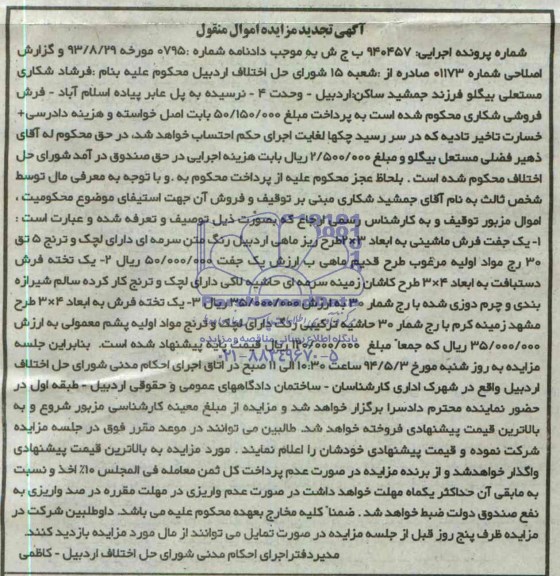 آگهی تجدید مزایده اموال منقول
شماره پرونده اجرایی: ۹۴۰۴۵۷ ب ج ش به موجب دادنامه شماره :۰۷۹۵ مورخه ۹۳/۸/۲۹ و گزارش
اصلاحی شماره ۰۱۱۷۳ صادره از :شعبه ۱۵ شورای حل اختلاف اردبیل محکوم علیه بنام :فرشاد شکاری
مستعلی بیگلو فرزند جمشید ساکن:اردبیل - وحدت ۴ - نرسیده به پل عابر پیاده اسلام آباد - فرش
فروشی شکاری محکوم شده است به پرداخت مبلغ ۵۰/۱۵۰/۰۰۰ بابت اصل خواسته و هزینه دادرسی+
خسارت تاخیر تادیه که در سر رسید چکها لغایت اجرای حکم احتساب خواهد شد، در حق محکوم له آقای
ذهیر فضلی مستعل بیگلو و مبلغ ۲/۵۰۰/۰۰۰ ریال بابت هزینه اجرایی در حق صندوق در آمد شورای حل
اختلاف محکوم شده است . بلحاظ عجز محکوم علیه از پرداخت محکوم به .و با توجه به معرفی مال توسط
شخص ثالث به نام آقای جمشید شکاری مبنی بر توقیف و فروش آن جهت استیفای موضوع محکومیت ،
اموال مزبور توقیف و به کارشناس رسمی ارجاع که بصورت ذیل توصیف و تعرفه شده و عبارت است :
۱- یک جفت فرش ماشینی به ابعاد ۳×۲طرح ریز ماهی اردبیل رنگ متن سرمه ای دارای لچک و ترنج ۵ تق
۳۰ رج مواد اولیه مرغوب طرح قدیم ماهی ب ارزش یک جفت ۵۰/۰۰۰/۰۰۰ ریال ۲- یک تخته فرش
دستبافت به ابعاد ۴×۳ طرح کاشان زمینه سرمه ای حاشیه لاکی دارای لچک و ترنج کار کرده سالم شیرازه
بندی و چرم دوزی شده با رج شمار ۳۰ به ارزش ۳۵/۰۰۰/۰۰۰ ریال ۳- یک تخته فرش به ابعاد ۴×۳ طرح
مشهد زمینه کرم با رج شمار ۳۰ حاشیه ترکیبی رنگ دارای لچک و ترنج مواد اولیه پشم معمولی به ارزش
۳۵/۰۰۰/۰۰۰ ریال که جمعا" مبلغ ۱۲۰/۰۰۰/۰۰۰ ریال قیمت پایه پیشنهاد شده است. بنابراین جلسه
مزایده به روز شنبه مورخ ۹۴/۵/۳ ساعت ۱۰:۳۰ الی ۱۱ صبح در اتاق اجرای احکام مدنی شورای حل اختلاف
اردبیل واقع در شهرک اداری کارشناسان - ساختمان دادگاههای عمومی و حقوقی اردبیل - طبقه اول در
حضور نماینده محترم دادسرا برگزار خواهد شد و مزایده از مبلغ معینه کارشناسی مزبور شروع و به
بالاترین قیمت پیشنهادی فروخته خواهد شد. طالبین می توانند در موعد مقرر فوق در جلسه مزایده
شرکت نموده و قیمت پیشنهادی خودشان را اعلام نمایند . مورد مزایده به بالاترین قیمت پیشنهادی
واگذار خواهدشد و از برنده مزایده در صورت عدم پرداخت کل ثمن معامله فی المجلس ۱۰٪ اخذ و نسبت
به مابقی آن حداکثر یکماه مهلت خواهد داشت در صورت عدم واریزی در مهلت مقرره در صد واریزی به
نفع صندوق دولت ضبط خواهد شد . ضمنا" کلیه مخارج بعهده محکوم علیه می باشد. داوطلبین شرکت در
مزایده ظرف پنج روز قبل از جلسه مزایده در صورت تمایل می توانند از مال مورد مزایده بازدید کنند.
مدیردفتراجرای احکام مدنی شورای حل اختلاف اردبیل - کاظمی
پایگاه اطلاع رسانی مناقصه و مزایده
۰۲۱-۸۸۳۴۹۶۷۰-۵